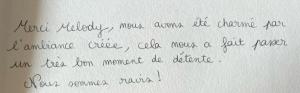 Merci Melody, nous avons été charmé par
l'ambiance créée, cela nous a fait passer
un très bon moment de détente.
Nous sommes ravis !